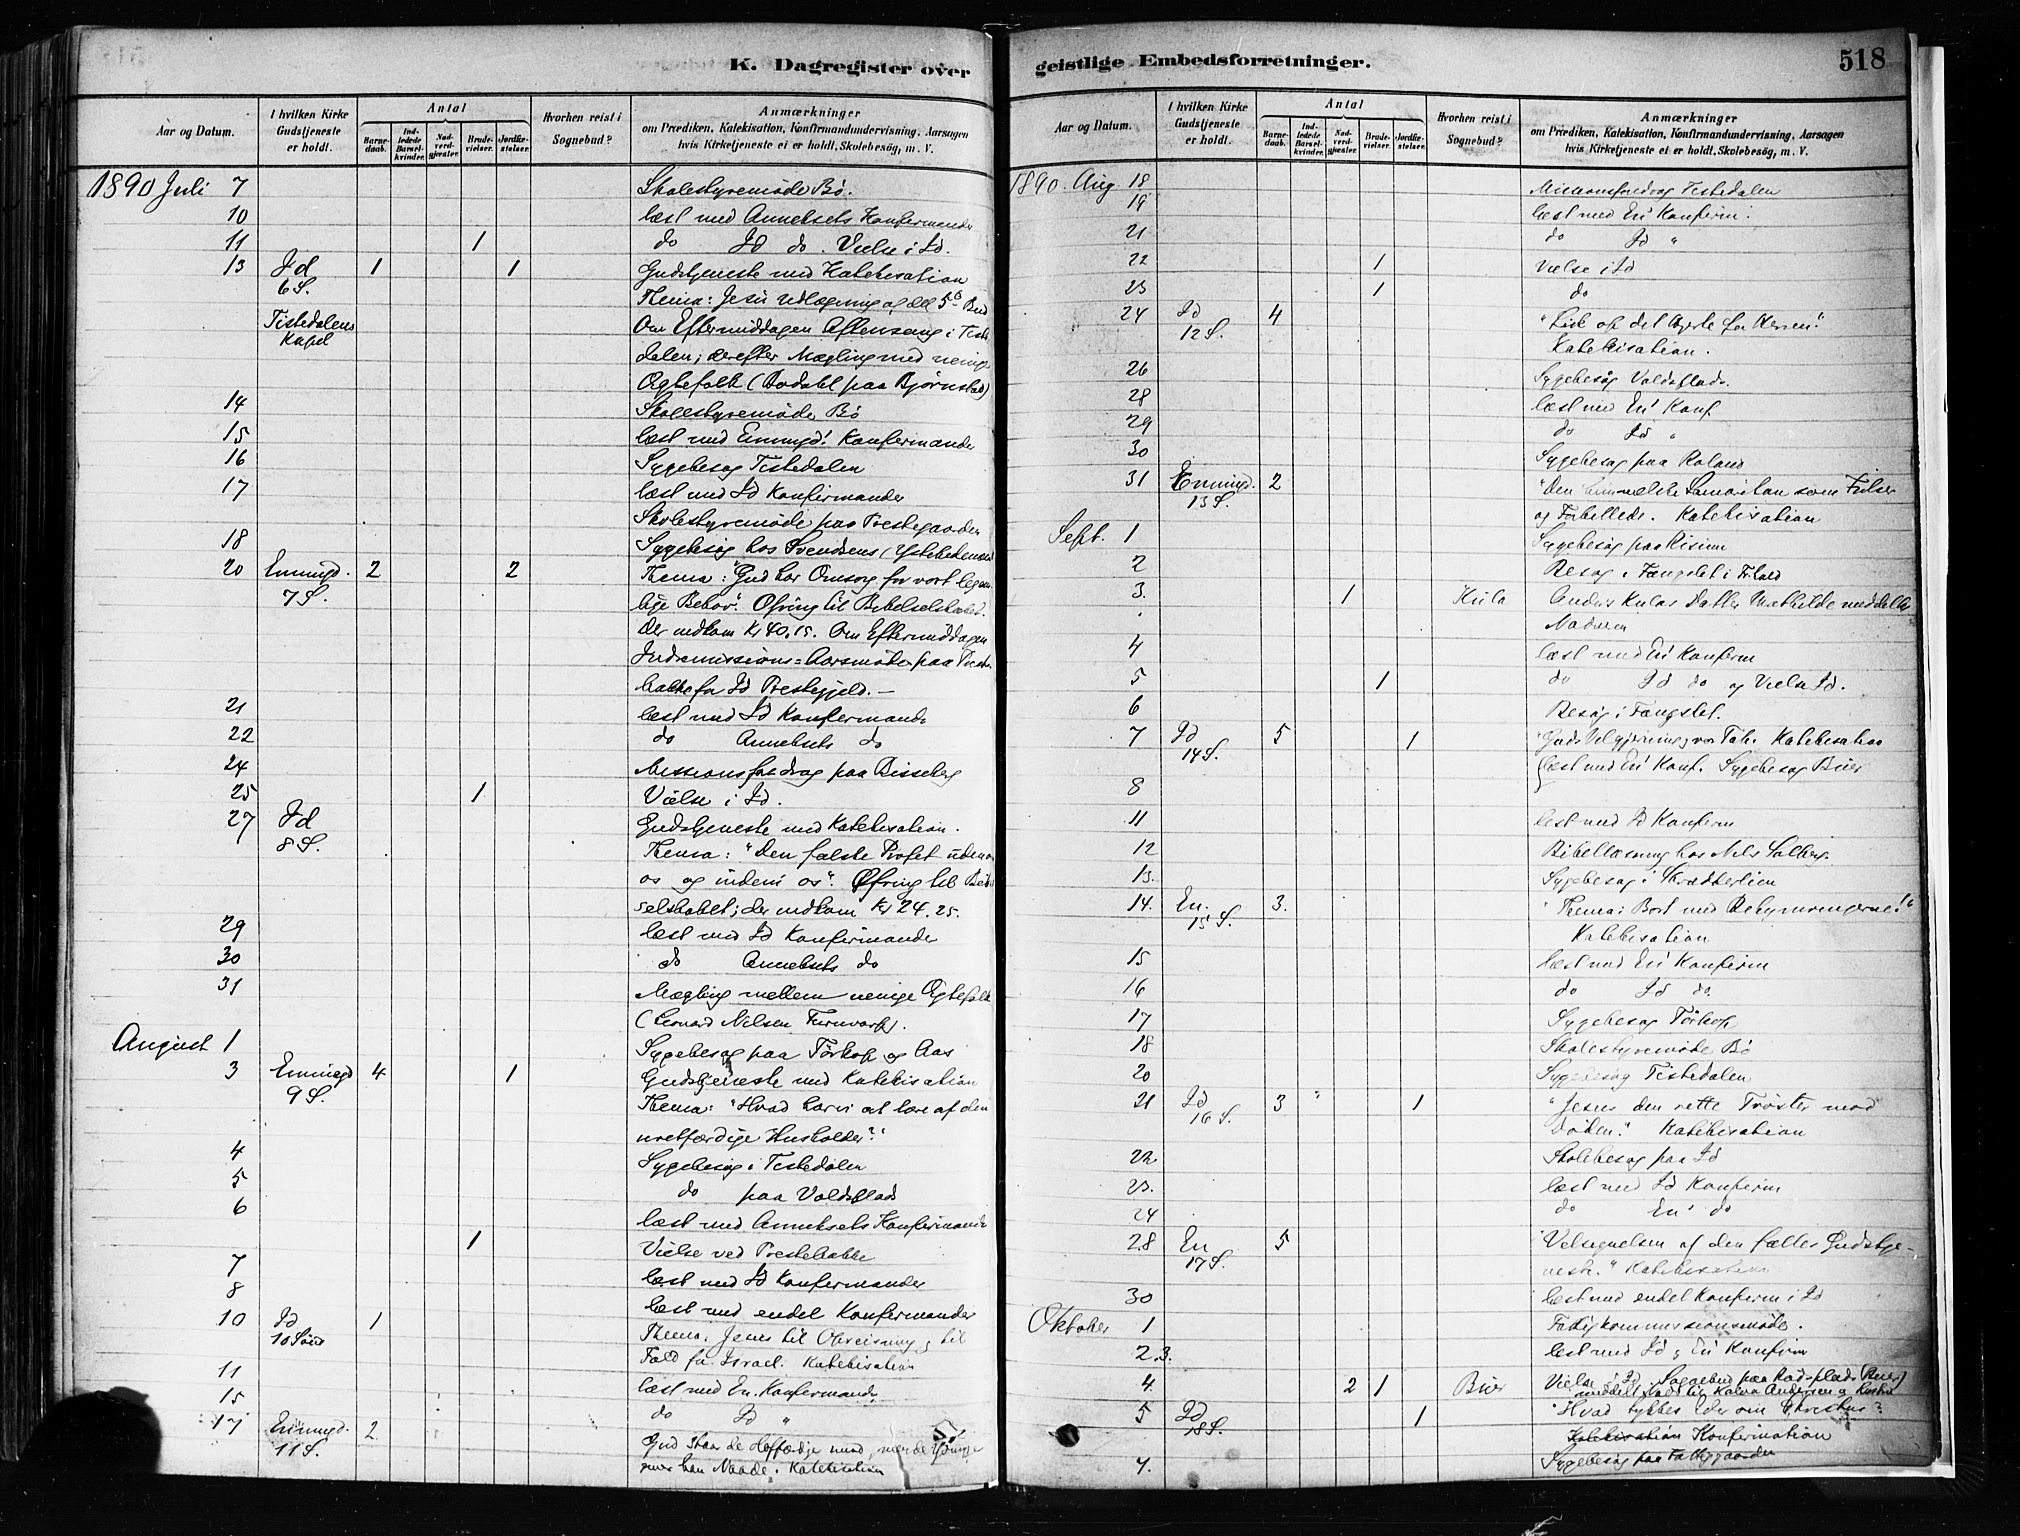 K. Dagregister over
Aar og Datum.
I hvilken Kirke Gudstjeneste er holdt.
Antal
Barnedaab.
Indledede Barselkvinder.
Nadverdgjester.
Brudevielser.
Jordfæstelser.
Hvorhen reist i Sognebud?
Anmærkninger
om Prædiken, Katekisation, Konfirmandundervisning, Aarsagen
hvis Kirketjeneste ei er holdt, Skolebesøg, m. V.
1890 Juli 7 Skolestyremøde Bø.
10 læst med Anneksets Konfirmander
11 1 do Id do. Vielse i Id.
13 Id 1 1 Gudstjeneste med Katekisation
6 S. Thema: Jesu Udlægning af det 5te Bud
Tistedalens Om Eftermiddagen Aftensang i Tiste
Kapel dalen; derefter Mægling med uenige
Ægtefolk (Bodahl paa Bjørnstad)
14 Skolestyremøde Bø
15 læst med Enningd. Konfirmander
16 Sygebesøg Tistedalen
17 læst med Id Konfirmander
Skolestyremøde paa Prestegaarden
18 Sygebesøg hos Svendsens
20 Enningd. 2 2 Thema: "Gud har Omsorg for vort legem
7 S. lige Behov". Ofring til Bibelselskabet.
Der indkom Kr 40.15. Om Eftermiddagen
Indremissions=Aarsmøde paa Preste
bakke for Id Prestegjeld. —
21 læst med Id Konfirmand.
22 do Anneksets do
24 Missionsforedrag paa Risseberg
25 1 Vielse i Id.
27 Id Gudstjeneste med Katekisation.
8 S. Thema: "Den falske Profet udenom
os og indeni os". Ofring til Bibel
selskabet; der indkom Kr 24.25.
29 læst med Id Konfirmander
30 do Anneksets do
31 Mægling mellem uenige Ægtefolk
(Leonard Nilsen
August 1 Sygebesøg paa Torkop og Aas
3 Enningd 4 1 Gudstjeneste med Katekisation
9 S. Thema: "Hvad har vi at lære af den
uretfærdige Husholder?"
4 Sygebesøg i Tistedalen
5 do paa Valdsflads
6 læst med Anneksets Konfirmander
1 Vielse ved Prestebakke
7 læst med Id Konfirmander
8 læst med endel Konfirmander
10 Id 1 Thema: Jesus til Opreisning og til
10 Fald for Israel. Katekisation
11 læst med En. Konfirmand.
15 do Id "
17 Enningd. 2 Gud staar de Hoffærdige imod, men de Ydmyge
11 S. giver han Naade. Katekisation
geistlige Embedsforretninger.
518
Aar og Datum.
I hvilken Kirke Gudstjeneste er holdt.
Antal
Barnedaab.
Indledede Barselkvinder.
Nadverdgjester.
Brudevielser.
Jordfæstelser.
Hvorhen reist i Sognebud?
Anmærkninger
om Prædiken, Katekisation, Konfirmandundervisning, Aarsagen
hvis Kirketjeneste ei er holdt, Skolebesøg, m. V.
1890. Aug. 18 Missionsforedrag Tistedalen
19 læst med En. Konfirm.
21 do Id "
22 1 Vielse i Id
23 1 do
24 Id 4 "Luk op dit Hjerte for Herren."
12 S. Katekisation.
26 Sygebesøg Valdsflads.
28 læst med En. Konf
29 do Id "
30 Sygebesøg paa
31 Enningd. 2 "Den himmelske Samaritan som Frelser
13 S. og Forbillede. Katekisation
Sept. 1 Sygebesøg paa Risum
2 Besøg i Fængslet i Frhald
3. 1 Kula Anders Kulas Datter Mathilde meddelt
Nadveren
4 læst med En. Konfirm
5 1 do Id do og Vielse Id.
6 Besøg i Fængslet.
7 Id 5 1 "Guds Velgjerning, vor Tak. Katekisation
14 S. læst med En. Konf. Sygebesøg Buer
8
11 læst med Id Konfirm
12 Bibellæsning hos Nils Solberg.
13. Sygebesøg i Skrædderlien
14. En. 3. "Thema: Bort med Bekymringerne!"
15 S. Katekisation
15 læst med En. Konfirm
16 do Id do.
17 Sygebesøg Torkop
18 Skolestyremøde Bø
20 Sygebesøg Tistedalen
21 Id 3 " 1 "Jesus den rette Trøster mod
16 S. Døden." Katekisation
22 Skolebesøg paa Id
23. læst med Id Konfirm
24 do En. do
28 En 5 "Velsignelsen af den fælles Gudstje-
17 S. neste." Katekisation
30 læst med endel Konfirm i Id
Oktober 1 Fattigkommissionsmøde.
2.3. læst med Id & En. Konfirm
4. 2 1 Buer Vielse i Id. Sognebud paa (Buer)
meddelt Andersen & Hustru
5 Id 1 "Hvad tykkes Eder om Christus?
18 S. Katekisation Konfirmation
7. Sygebesøg paa Fattiggaarden